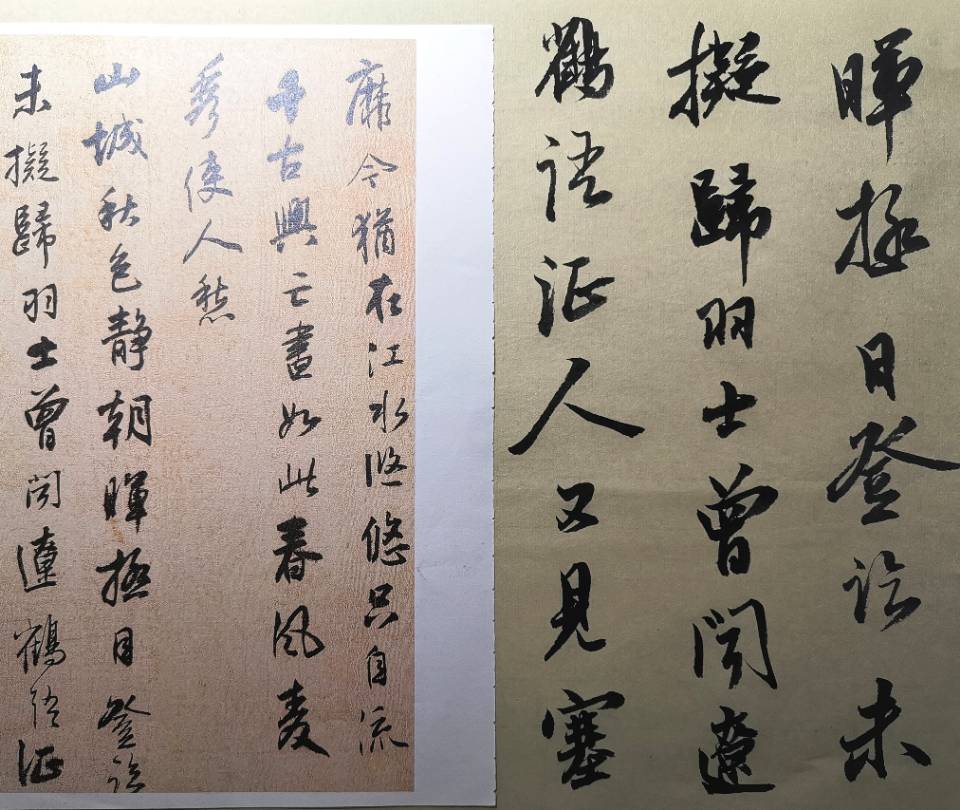 暉極目登臨未
擬歸羽士曾聞遼
鶴語征人又見塞
靡今猶在江水悠悠只自流
千古興亡盡如此春風麦
秀使人愁
山城秋色静朝暉極目登臨
未擬歸羽士曾聞遼鶴語征